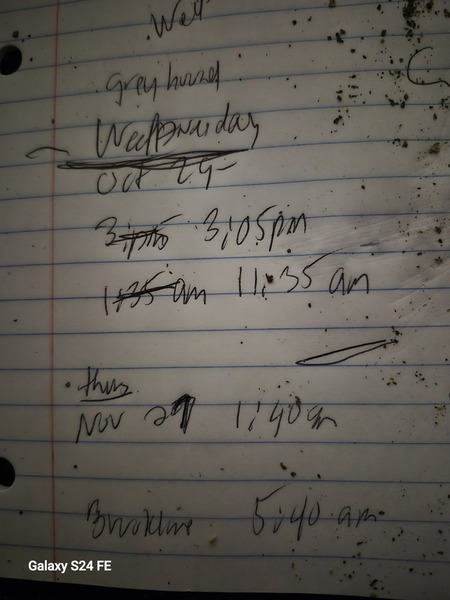 Wed
greyhound
Wednesday
Oct 29
3:05pm
am 11:35 am
thurs
Nov 27 1:40 am
Brookline 5:40 am
Galaxy S24 FE